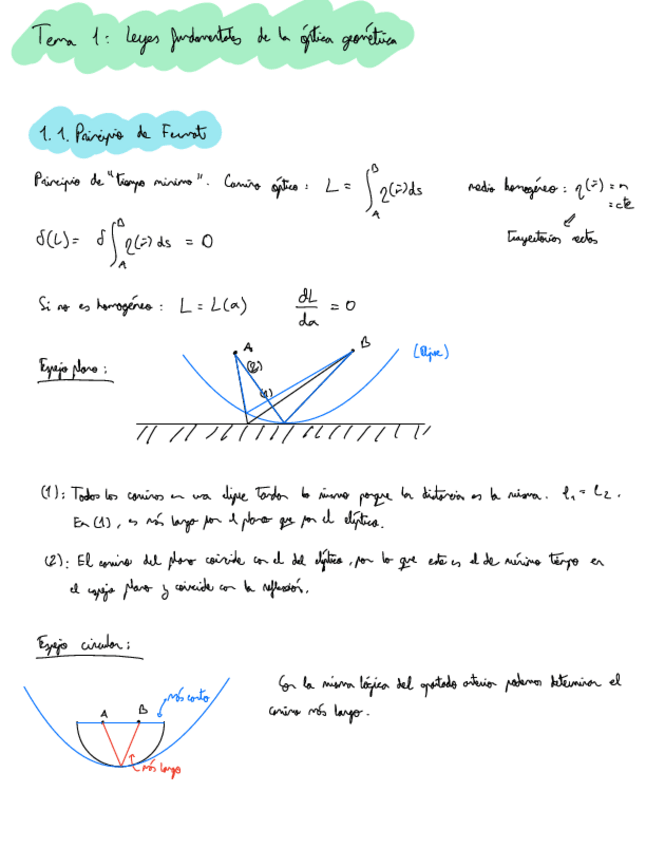 Tema 1: Leyes fundamentales de la óptica geométrica
1.1. Principio de Fermat
Principio de "tiempo mínimo". Camino óptico: L = ∫_A^B η(r̄) ds medio homogéneo: η(r̄) = n = cte
δ(L) = δ∫_A^B η(r̄) ds = 0 trayectorias rectas
Si no es homogéneo: L = L(a) dL/da = 0
Espejo plano:
A
B
(Elipse)
(2)
(1)
(1): Todos los caminos en una elipse tardan lo mismo porque la distancia es la misma. l₁ = l₂.
En (1), es más largo por el plano que por el elíptico.
(2): El camino del plano coincide con el del elíptico, por lo que este es el de mínimo tiempo en
el espejo plano y coincide con la reflexión.
Espejo circular:
más corto
A B
más largo
Con la misma lógica del apartado anterior podemos determinar el
camino más largo.